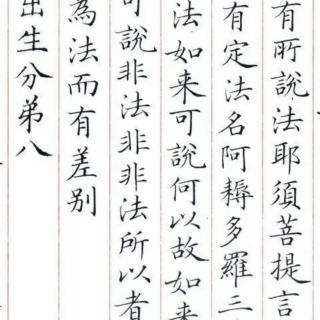 有所說法耶須菩提言
有定法名阿耨多羅三
法如来可說何以故如来
可說非法非非法所以者
為法而有差别
出生分弟八